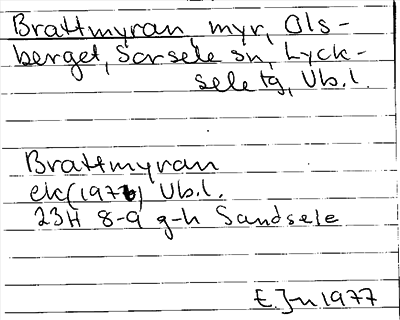 Brattmyran, myr, Ols-
berget, Sorsele sn, Lyck-
sele tg, Vb.l.
Brattmyran
ek(1976) Vb.l.
23H 8-9 g-h Sandsele
E J-n 1977